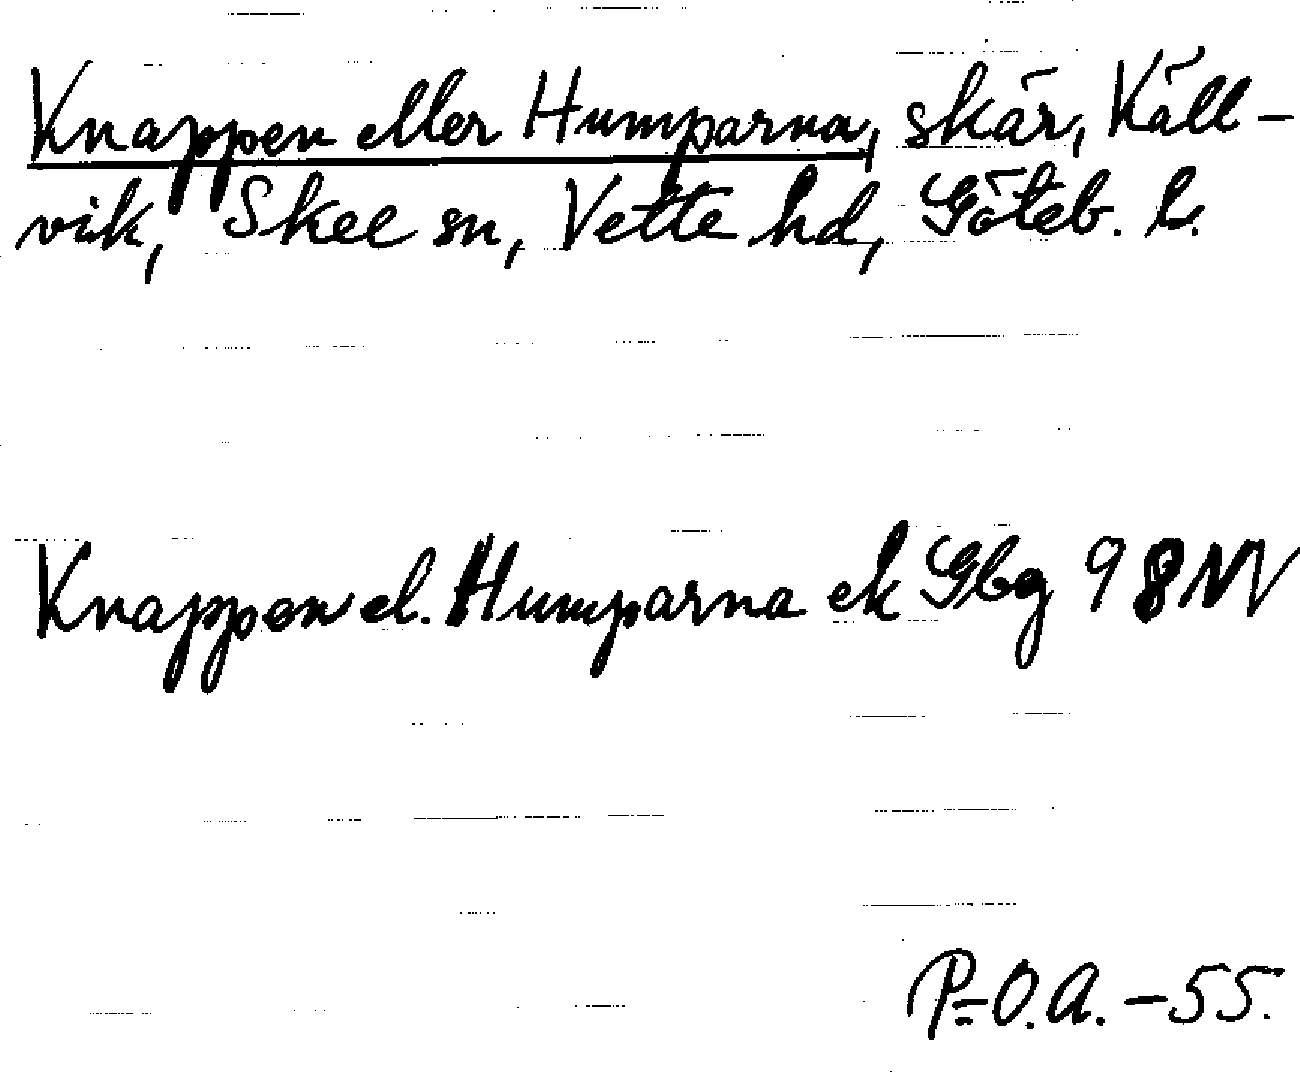 Knappen eller Humparna, skär, Käll-
vik, Skee sn, Vette hd, Göteb. l.
Knappen el. Humparna ek Gbg 9 8 NV
P-O.A. -55.